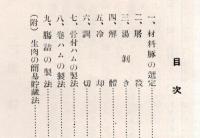 目次
一、材料豚の選定
二、屠殺
三、湯剥き
四、解體
五、冷却
六、調切
七、骨付ハムの製法
八、巻ハムの製法
九、腸詰の製法
（附）生肉の簡易貯蔵法